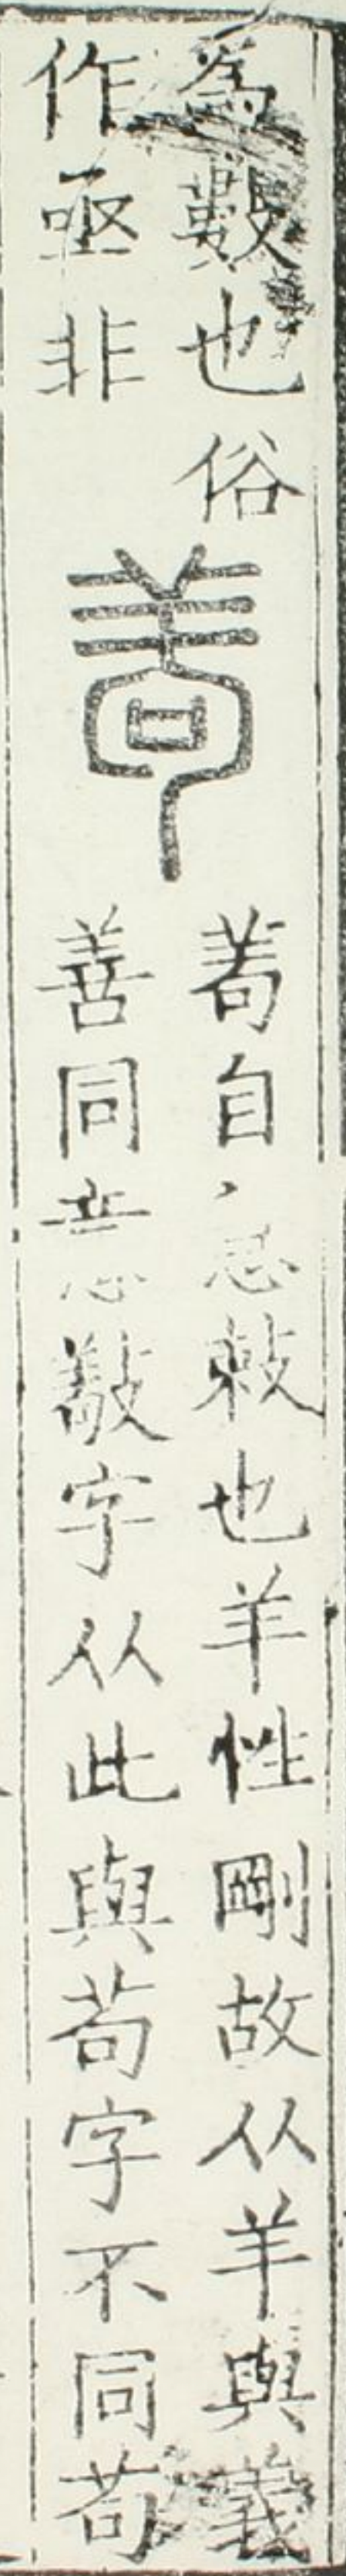 為數也俗
作亟非
茍
茍自丶急敕也羊性剛故从羊與義
善同意敬字从此與苟字不同苟